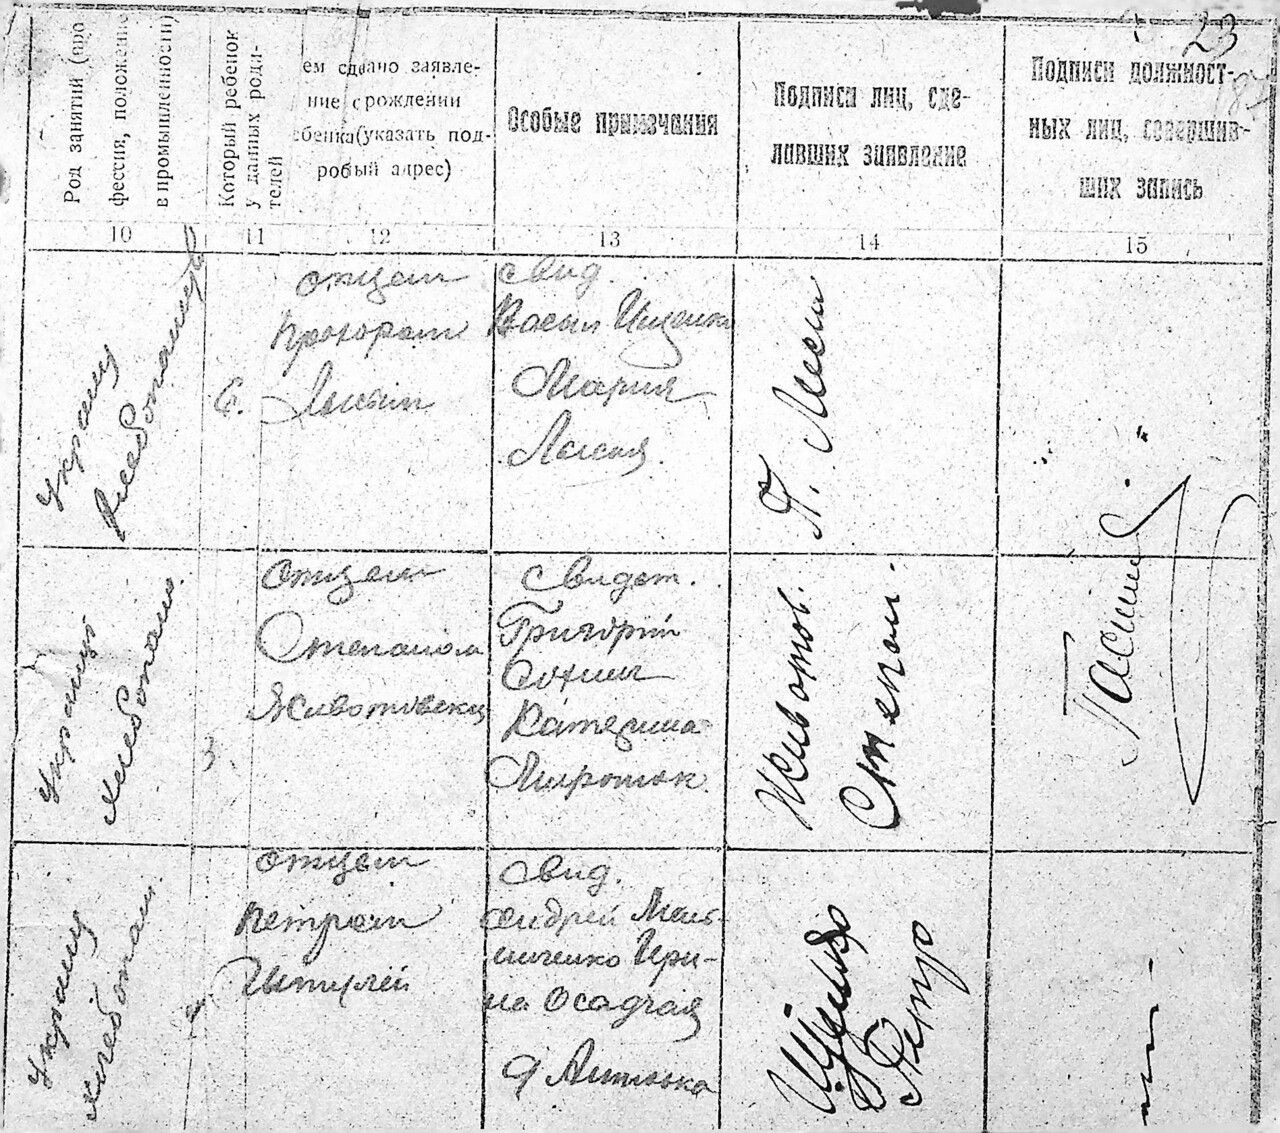 23
Род занятий (про
фессия, положение
в промышленности)
Который ребенок
у данных роди-
телей
ем сдано заявле-
ние с рождении
ебенка (указать под-
робый адрес)
Особые примечания
Подписи лиц, сде-
лавших заявление
Подписи должност-
ных лиц, совершив-
ших запись
10
11
12
13
14
15
украинц
хлебопашец
6.
отцем
Прохором
Лысым
свид.
Васыл Ищенко
Мария
Лысая.
П. Лысы
украинц
хлебопаш.
3.
отцем
Степаном
Животовски
свидет.
Григорий
Сохник
Катерина
Животов.
Степан.
украинц
хлебопаш.
отцем
Петром
свид.
Андрей Мель-
ниченко Ири-
на Осадчая
Петро